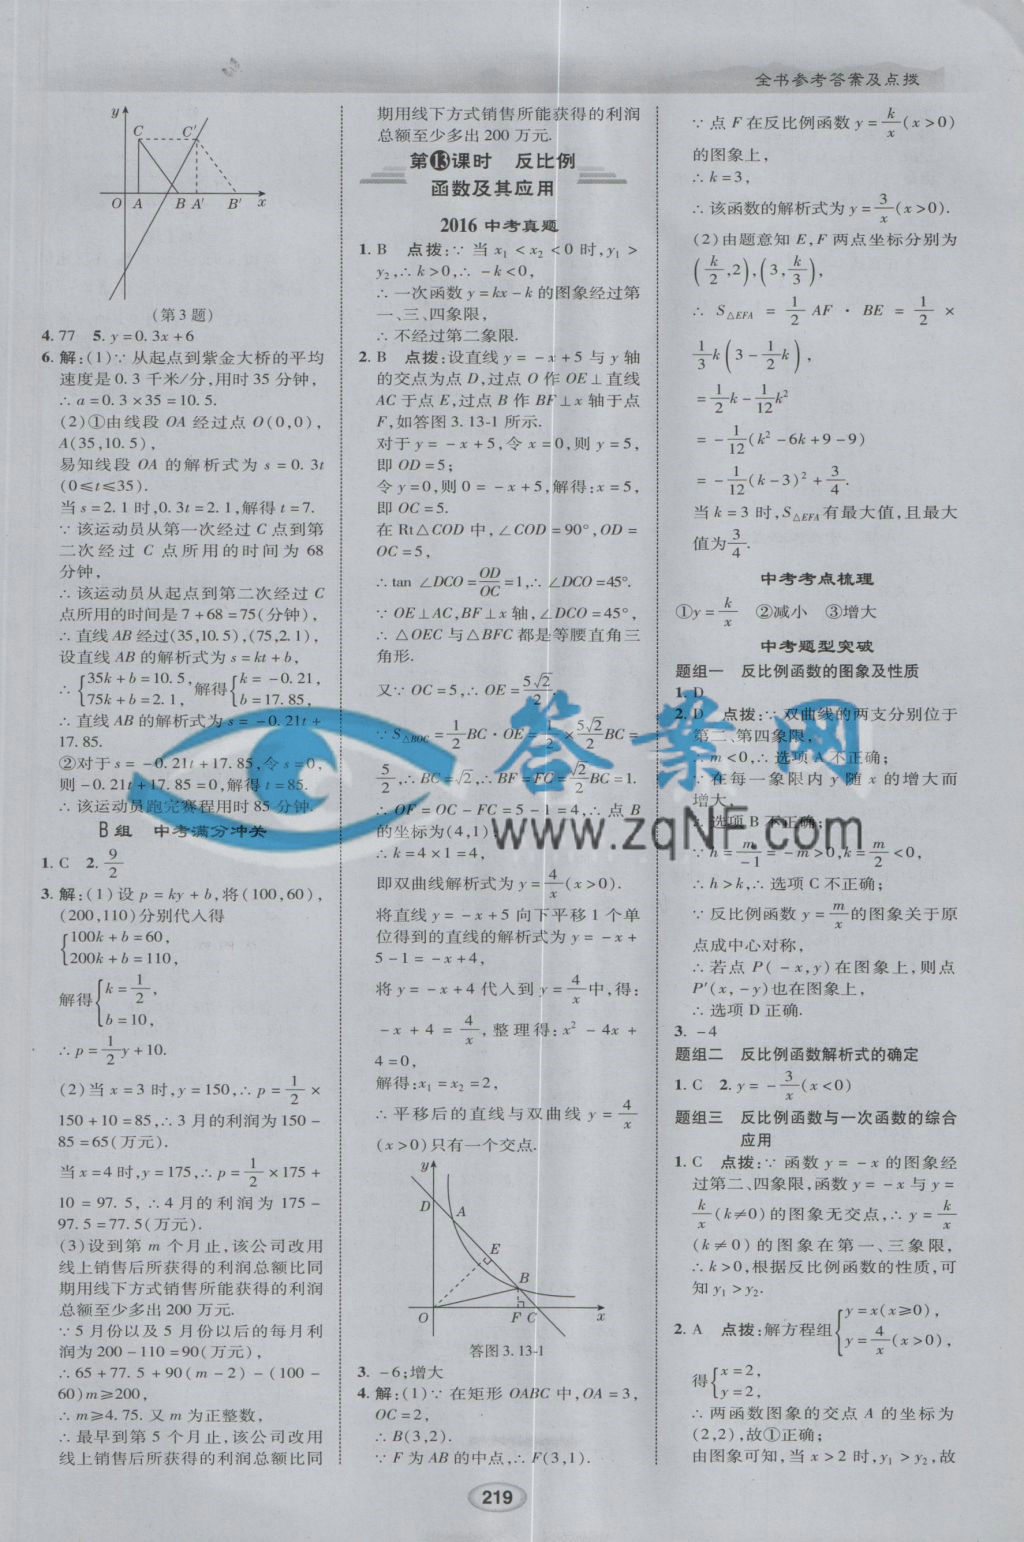 全书参考答案及点拨
y
C C′
O A B A′ B′ x
(第3题)
4. 77 5. y=0.3x+6
6. 解:(1)∵从起点到紫金大桥的平均
速度是0.3千米/分,用时35分钟,
∴a=0.3×35=10.5.
(2)①由线段OA经过点O(0,0),
A(35,10.5),
易知线段OA的解析式为s=0.3t
(0≤t≤35).
当s=2.1时,0.3t=2.1,解得t=7.
∵该运动员从第一次经过C点到第
二次经过C点所用的时间为68
分钟,
∴该运动员从起点到第二次经过C
点所用的时间是7+68=75(分钟),
∴直线AB经过(35,10.5),(75,2.1),
设直线AB的解析式为s=kt+b,
∴{35k+b=10.5, 75k+b=2.1, 解得{k=-0.21, b=17.85,
∴直线AB的解析式为s=-0.21t+
17.85.
②对于s=-0.21t+17.85,令s=0,
则-0.21t+17.85=0,解得t=85.
∴该运动员跑完赛程用时85分钟.
B组 中考满分冲关
1. C 2. 9/2
3. 解:(1)设p=ky+b,将(100,60),
(200,110)分别代人得
{100k+b=60,
200k+b=110,
解得{k=1/2,
b=10,
∴p=1/2y+10.
(2)当x=3时,y=150,∴p=1/2×
150+10=85,∴3月的利润为150-
85=65(万元).
当x=4时,y=175,∴p=1/2×175+
10=97.5,∴4月的利润为175-
97.5=77.5(万元).
(3)设到第m个月止,该公司改用
线上销售后所获得的利润总额比同
期用线下方式销售所能获得的利润
总额至少多出200万元.
∵5月份以及5月份以后的每月利
润为200-110=90(万元),
∴65+77.5+90(m-2)-(100-
60)m≥200,
∴m≥4.75.又m为正整数,
∴最早到第5个月止,该公司改用
线上销售后所获得的利润总额比同
期用线下方式销售所能获得的利润
总额至少多出200万元.
第13课时 反比例
函数及其应用
2016中考真题
1. B 点拨:∵当x₁<x₂<0时,y₁>
y₂,∴k>0,∴-k<0,
∴一次函数y=kx-k的图象经过第
一、三、四象限,
∴不经过第二象限.
2. B 点拨:设直线y=-x+5与y轴
的交点为点D,过点O作OE⊥直线
AC于点E,过点B作BF⊥x轴于点
F,如答图3.13-1所示.
对于y=-x+5,令x=0,则y=5,
即OD=5;
令y=0,则0=-x+5,解得:x=5,
即OC=5.
在Rt△COD中,∠COD=90°,OD=
OC=5,
∴tan∠DCO=OD/OC=1,∴∠DCO=45°.
∵OE⊥AC,BF⊥x轴,∠DCO=45°,
∴△OEC与△BFC都是等腰直角三
角形.
又∵OC=5,∴OE=5√2/2.
∵S△BOC=1/2BC·OE=1/2×5√2/2BC=
5/2,∴BC=√2,∴BF=FC=√2/2BC=1.
∴OF=OC-FC=5-1=4,∴点B
的坐标为(4,1);
∴k=4×1=4,
即双曲线解析式为y=4/x(x>0).
将直线y=-x+5向下平移1个单
位得到的直线的解析式为y=-x+
5-1=-x+4,
将y=-x+4代人到y=4/x中,得:
-x+4=4/x,整理得:x²-4x+
4=0,
解得:x₁=x₂=2,
∴平移后的直线与双曲线y=4/x
(x>0)只有一个交点.
y
D A
E
B
O F C x
答图3.13-1
3. -6;增大
4. 解:(1)∵在矩形OABC中,OA=3,
OC=2,
∴B(3,2).
∵F为AB的中点,∴F(3,1).
∵点F在反比例函数y=k/x(x>0)
的图象上,
∴k=3,
∴该函数的解析式为y=3/x(x>0).
(2)由题意知E,F两点坐标分别为
(k/2,2),(3,k/3),
∴S△EFA=1/2AF·BE=1/2×
1/3k(3-1/2k),
=1/2k-1/12k²
=-1/12(k²-6k+9-9)
=-1/12(k-3)²+3/4.
当k=3时,S△EFA有最大值,且最大
值为3/4.
中考考点梳理
①y=k/x ②减小 ③增大
中考题型突破
题组一 反比例函数的图象及性质
1. D
2. D 点拨:∵双曲线的两支分别位于
第二、第四象限,
∴m<0,∴选项A不正确;
∵在每一象限内y随x的增大而
增大,
∴选项B不正确;
∵h=m/-1=-m>0,k=m/2<0,
∴h>k,∴选项C不正确;
∵反比例函数y=m/x的图象关于原
点成中心对称,
∴若点P(-x,y)在图象上,则点
P′(x,-y)也在图象上,
∴选项D正确.
3. -4
题组二 反比例函数解析式的确定
1. C 2. y=-3/x(x<0)
题组三 反比例函数与一次函数的综合
应用
1. C 点拨:∵函数y=-x的图象经
过第二、四象限,函数y=-x与y=
k/x(k≠0)的图象无交点,∴y=k/x
(k≠0)的图象在第一、三象限,
∴k>0,根据反比例函数的性质,可
知y₁>y₂.
2. A 点拨:解方程组{y=x(x≥0), y=4/x(x>0),
得{x=2,
y=2,
∴两函数图象的交点A的坐标为
(2,2),故①正确;
由图象可知,当x>2时,y₁>y₂,故
219
答案网
www.zqnf.com